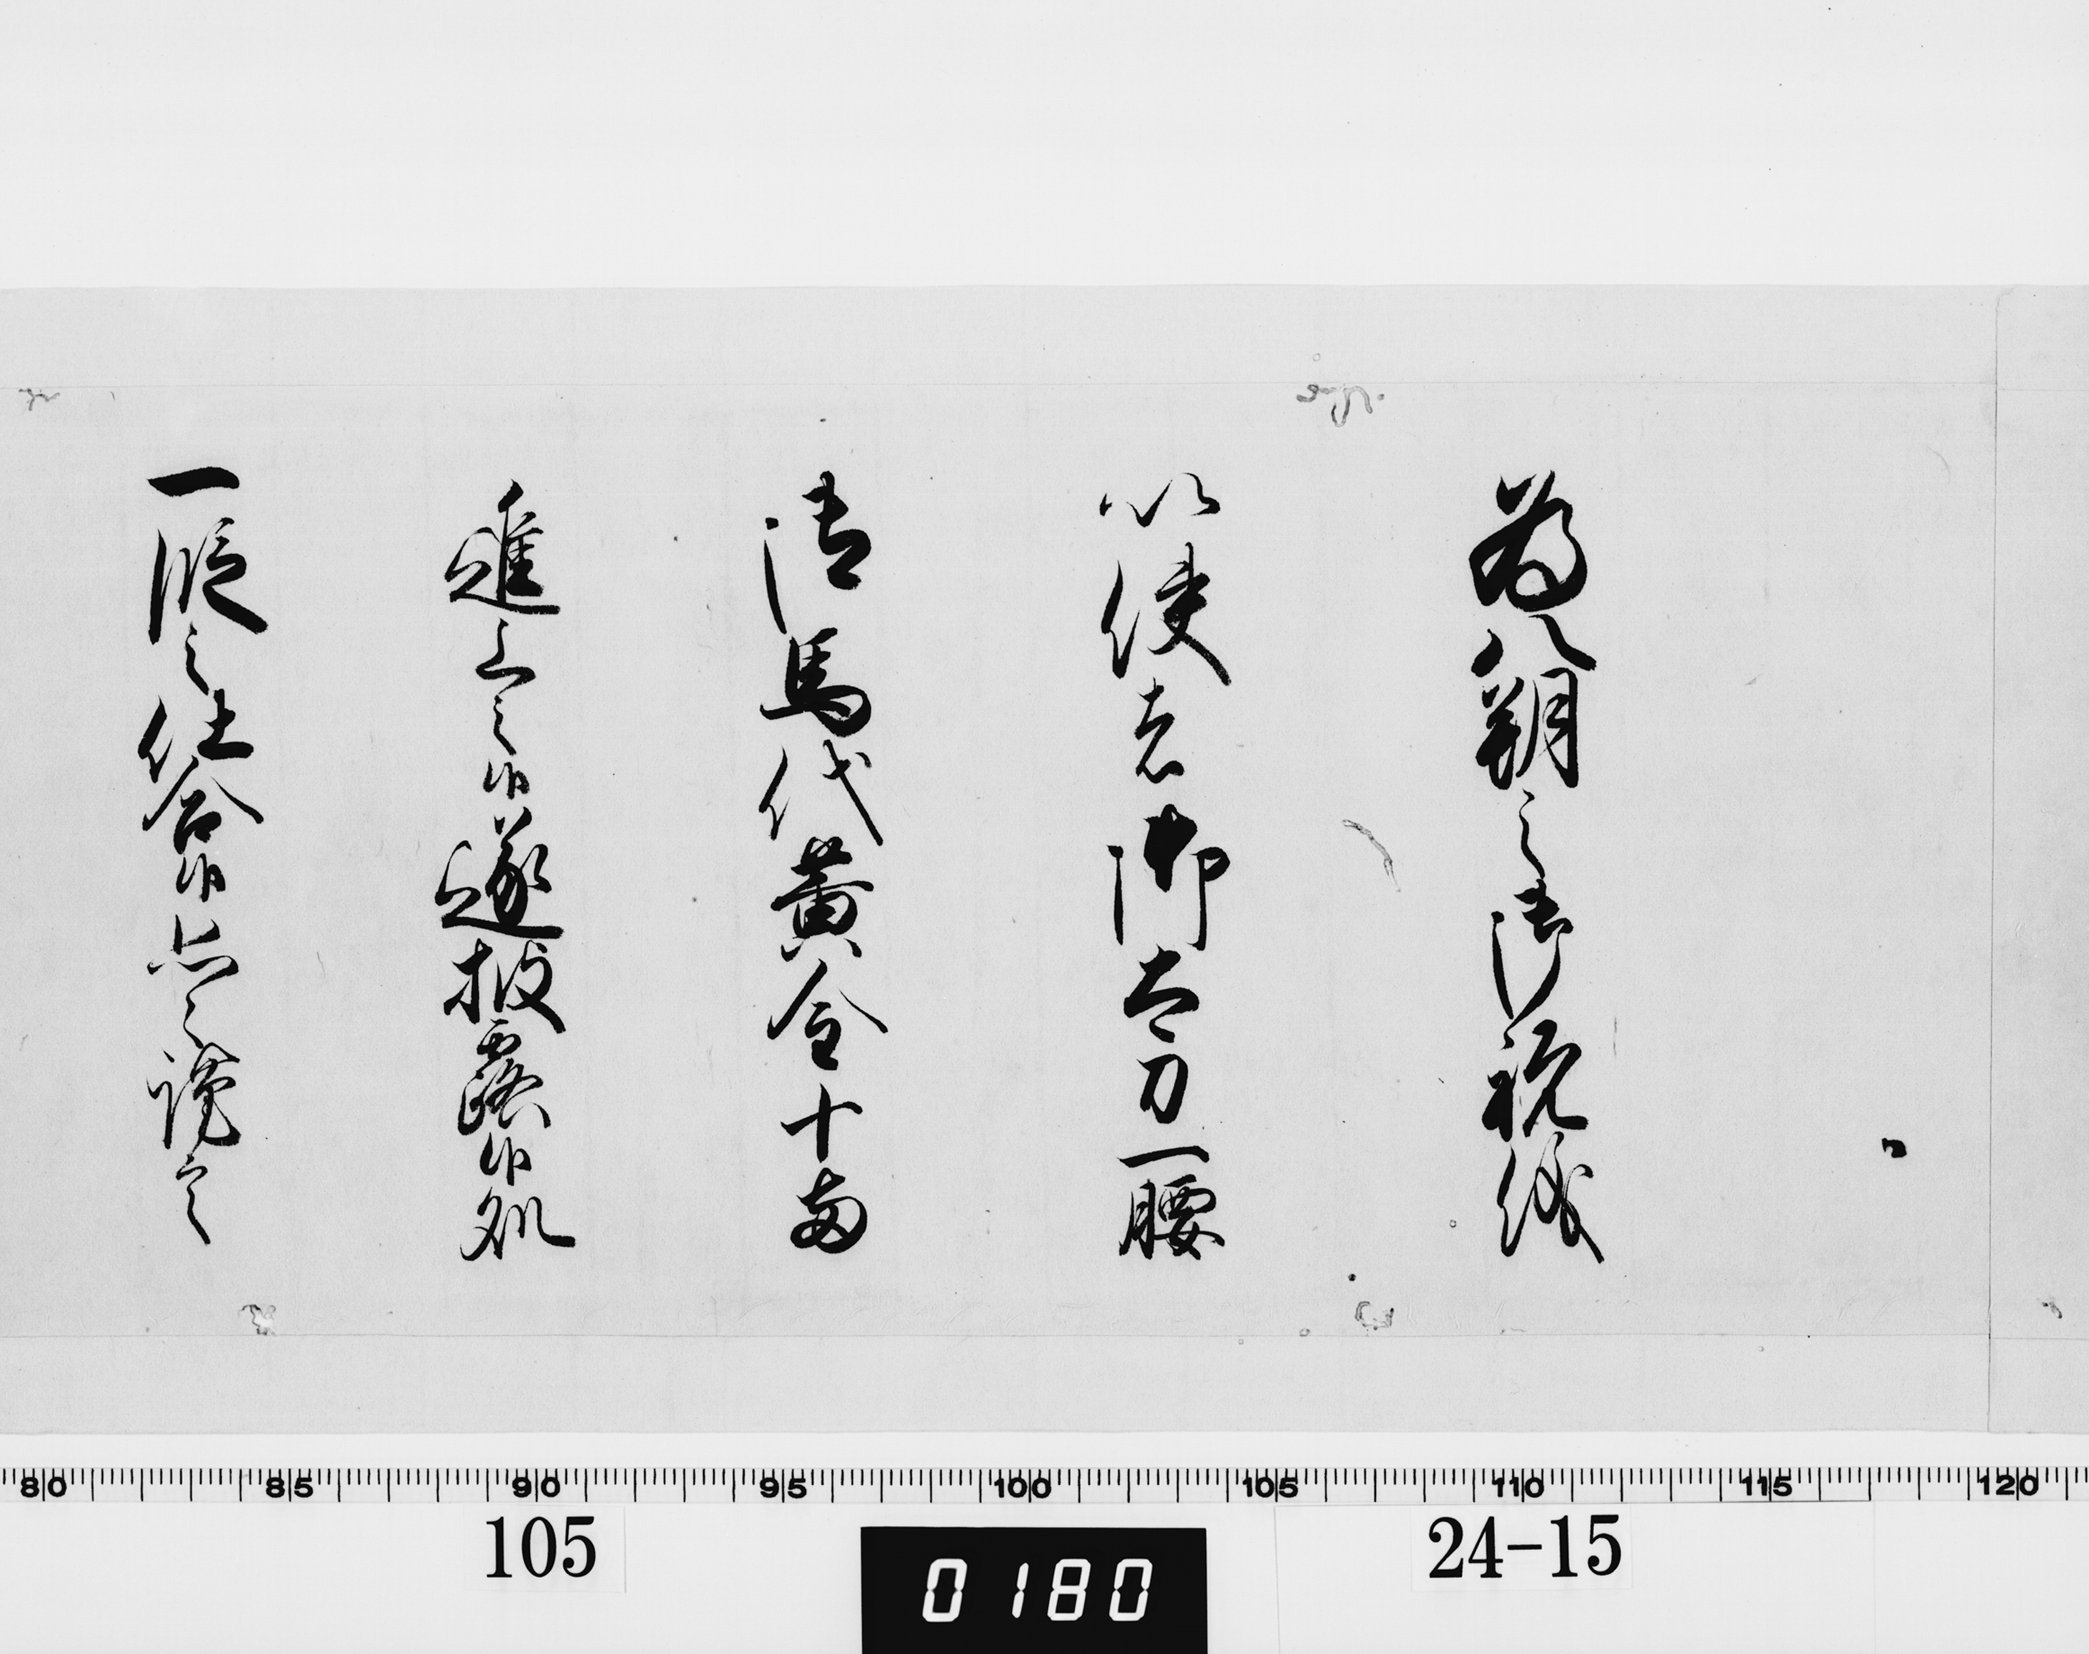 為八朔之御祝儀
以使者御太刀一腰
御馬代黄金十両
進上之候遂披露候処
一段之仕合候恐々謹言
80 85 90 95 100 105 110 115 120
105 0180 24-15